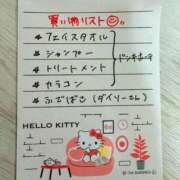 買い物リスト
★ フェイスタオル
★ シャンプー
★ トリートメント
★ カラコン
ドンキホーテ
★ ふでばこ (ダイソーさん)
HELLO KITTY